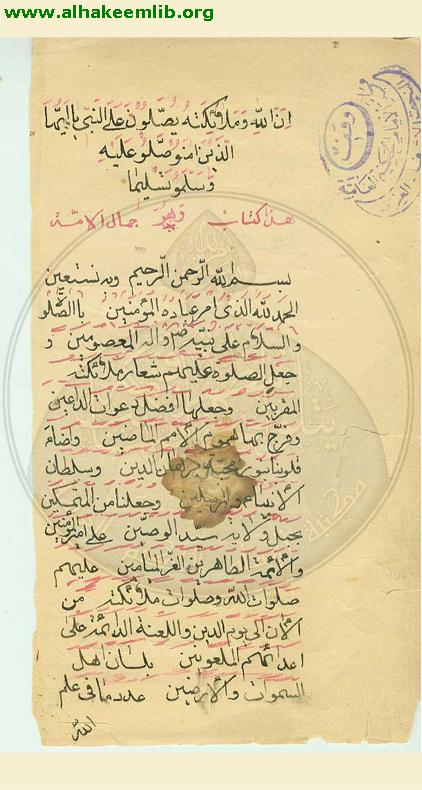 www.alhakeemlib.org
ان الله وملائكته يصلون على النبي يا ايها
الذين امنو صلو عليه
وسلمو تسليما
هذا كتاب وهو جمال الأمة
بسم الله الرحمن الرحيم وبه نستعين
الحمد لله الذي امر عباده المؤمنين باالصلو
والسلام على نبيه واله المعصومين و
جعل الصلوة عليهم شعار ملائكته
المقربين وجعلها افضل دعوات الداعين
وفرج بها هموم الأمم الماضين واضاء
قلوبنا بنور محبة الدين وسلطان
الأنبياء والمرسلين وجعلنا من المتمسكين
بحبل ولاية سيد الوصيين على امير المؤمنين
والأئمة الطاهرين الغر الميامين عليهم
صلوات الله وصلوات ملائكته من
الأن الى يوم الدين واللعنة الدائمة على
اعدائهم الملعونين بلسان اهل
السموات والأرضين عدد ما في علم
الله
وقف